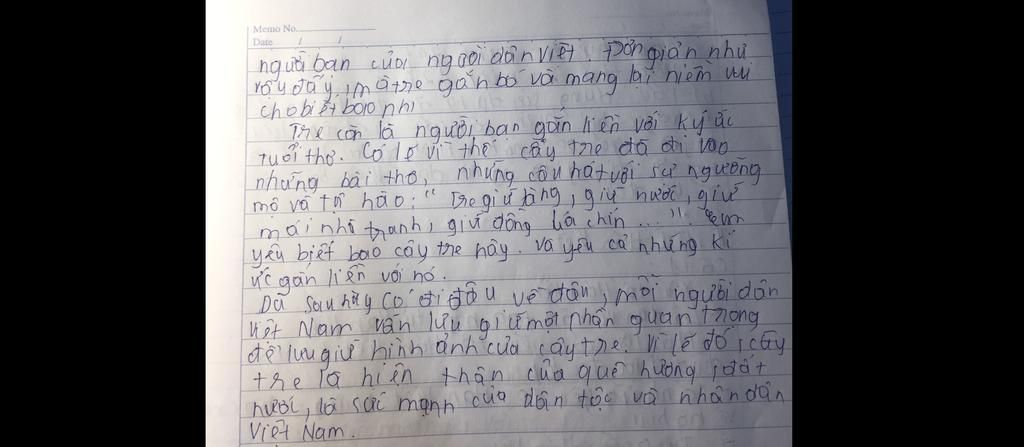 Memo No.
Date / /
người bạn của người dân Việt. Đơn giản như
vậy đấy, mà tre gắn bó và mang lại niềm vui
cho biết bao nhi
Tre còn là người bạn gắn liền với ký ức
tuổi thơ. Có lẽ vì thế cây tre đã đi vào
những bài thơ, những câu hát với sự ngưỡng
mộ và tự hào: "Tre giữ làng, giữ nước, giữ
mái nhà tranh, giữ đồng lúa chín ...". Em
yêu biết bao cây tre này. và yêu cả những kí
ức gắn liền với nó.
Dù sau này có đi đâu về đâu, mỗi người dân
Việt Nam vẫn lưu giữ một phần quan trọng
để lưu giữ hình ảnh của cây tre. Vì lẽ đó, cây
tre là hiện thân của quê hương, đất
nước, là sức mạnh của dân tộc và nhân dân
Việt Nam.